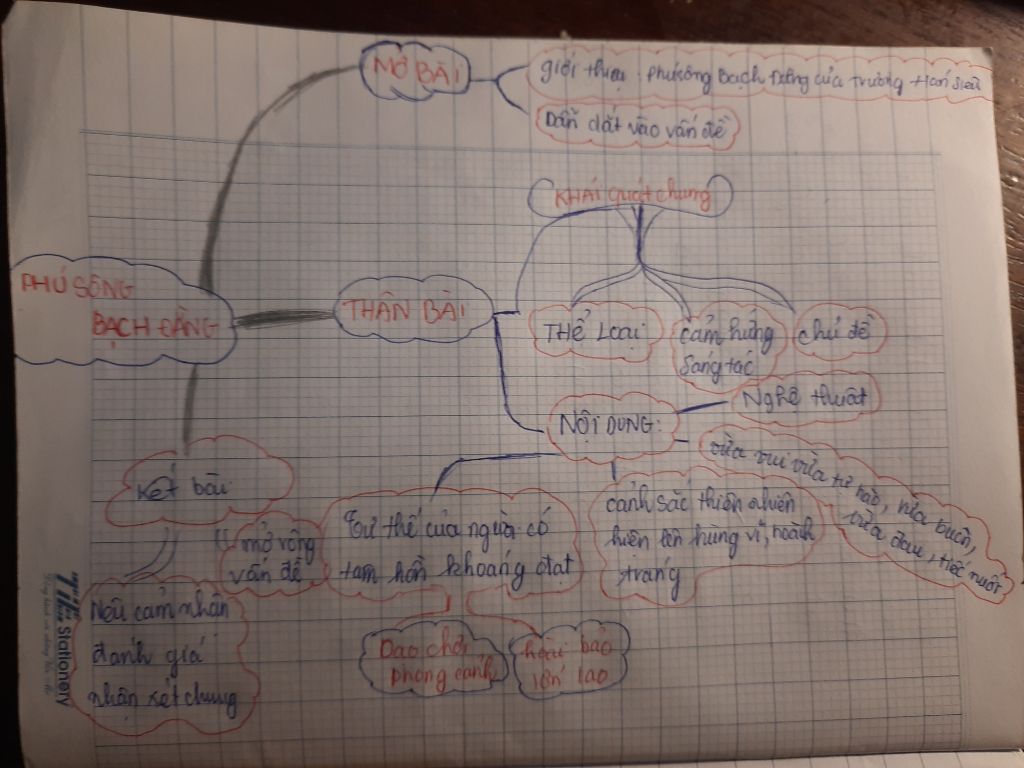 MỞ BÀI
giới thiệu: phú sông Bạch Đằng của Trương Hán Siêu
Dẫn dắt vào vấn đề
KHÁI quát chung
PHÚ SÔNG
BẠCH ĐẰNG
THÂN BÀI
THỂ LOẠI
cảm hứng
sáng tác
chủ đề
Nghệ thuật
NỘI DUNG:
vừa vui vừa tự hào, vừa buồn,
vừa đau, tiếc nuối
Kết bài
mở rộng
vấn đề
Tư thế của người có
tam hồn khoáng đạt
cảnh sắc thiên nhiên
hiện lên hùng vĩ, hoành
tráng
Nêu cảm nhận
đánh giá
nhận xét chung
Dạo chơi
phong cảnh
hoài bảo
lớn lao
Stationery